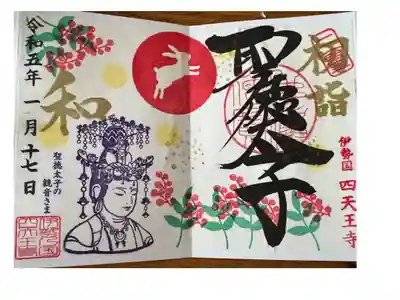 初詣
聖徳太子
伊勢国 四天王寺
和
令和五年 一月十七日
聖徳太子の
観音さま